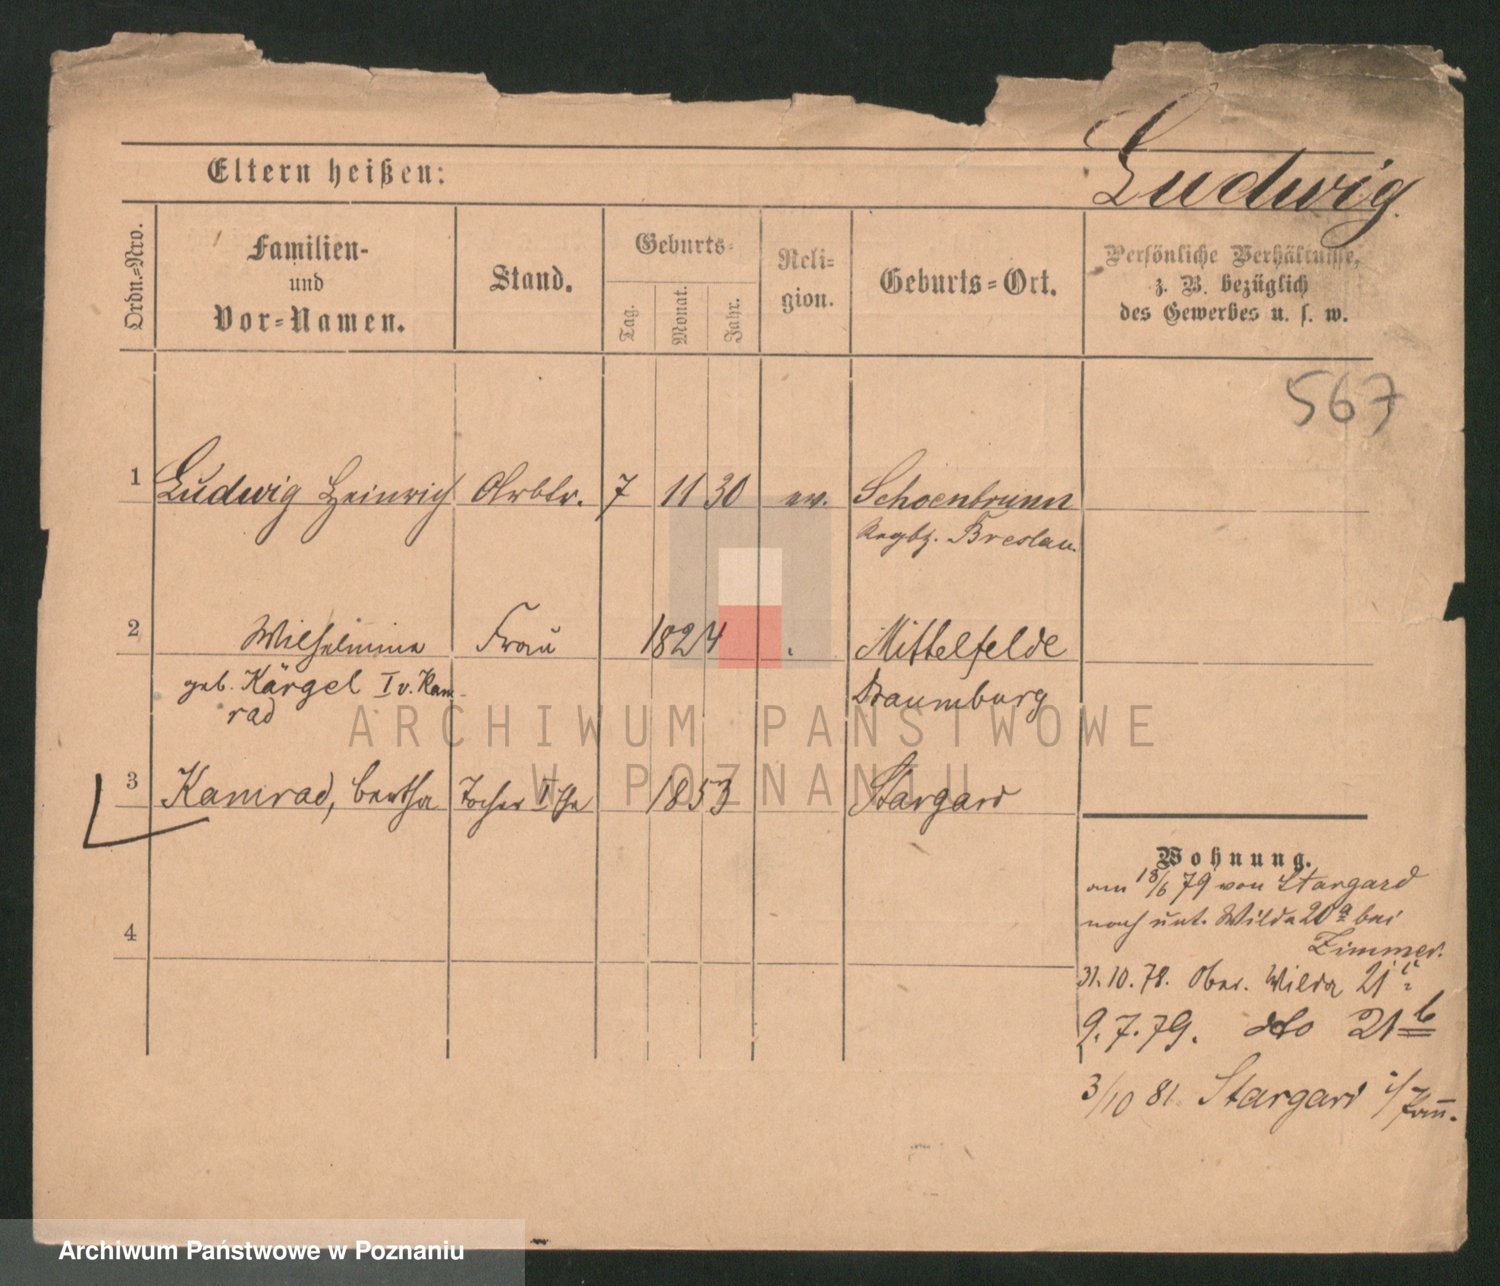 Ludwig
Eltern heißen:
Ordn.-Nro.
Familien-
und
Vor-Namen.
Stand.
Geburts-
Tag.
Monat.
Jahr.
Reli-
gion.
Geburts-Ort.
Persönliche Verhältnisse,
z. B. bezüglich
des Gewerbes u. s. w.
567
1 Ludwig Heinrich Arbtr. 7 11 30 ev. Schoenbrunn
Regbz. Breslau.
2 Wilhelmine Frau 1824 Mittelfelde
geb. Kärgel I v. Kam-
rad
Naumburg
3 Kamrad, Bertha Tochter I Ehe 1853 Stargard
4
Wohnung.
am 18/6 79 von Stargard
nach unt. Wilda 20a bei
Zimmer.
31.10.78. Ober. Wilda 21
9.7.79. dto 21b
3/10 81 Stargard i/Pom.
ARCHIWUM PAŃSTWOWE
W POZNANIU
Archiwum Państwowe w Poznaniu